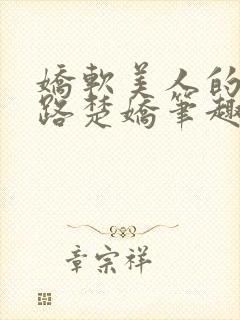 嬌軟美人的
路楚嬌筆趣
章宗祥